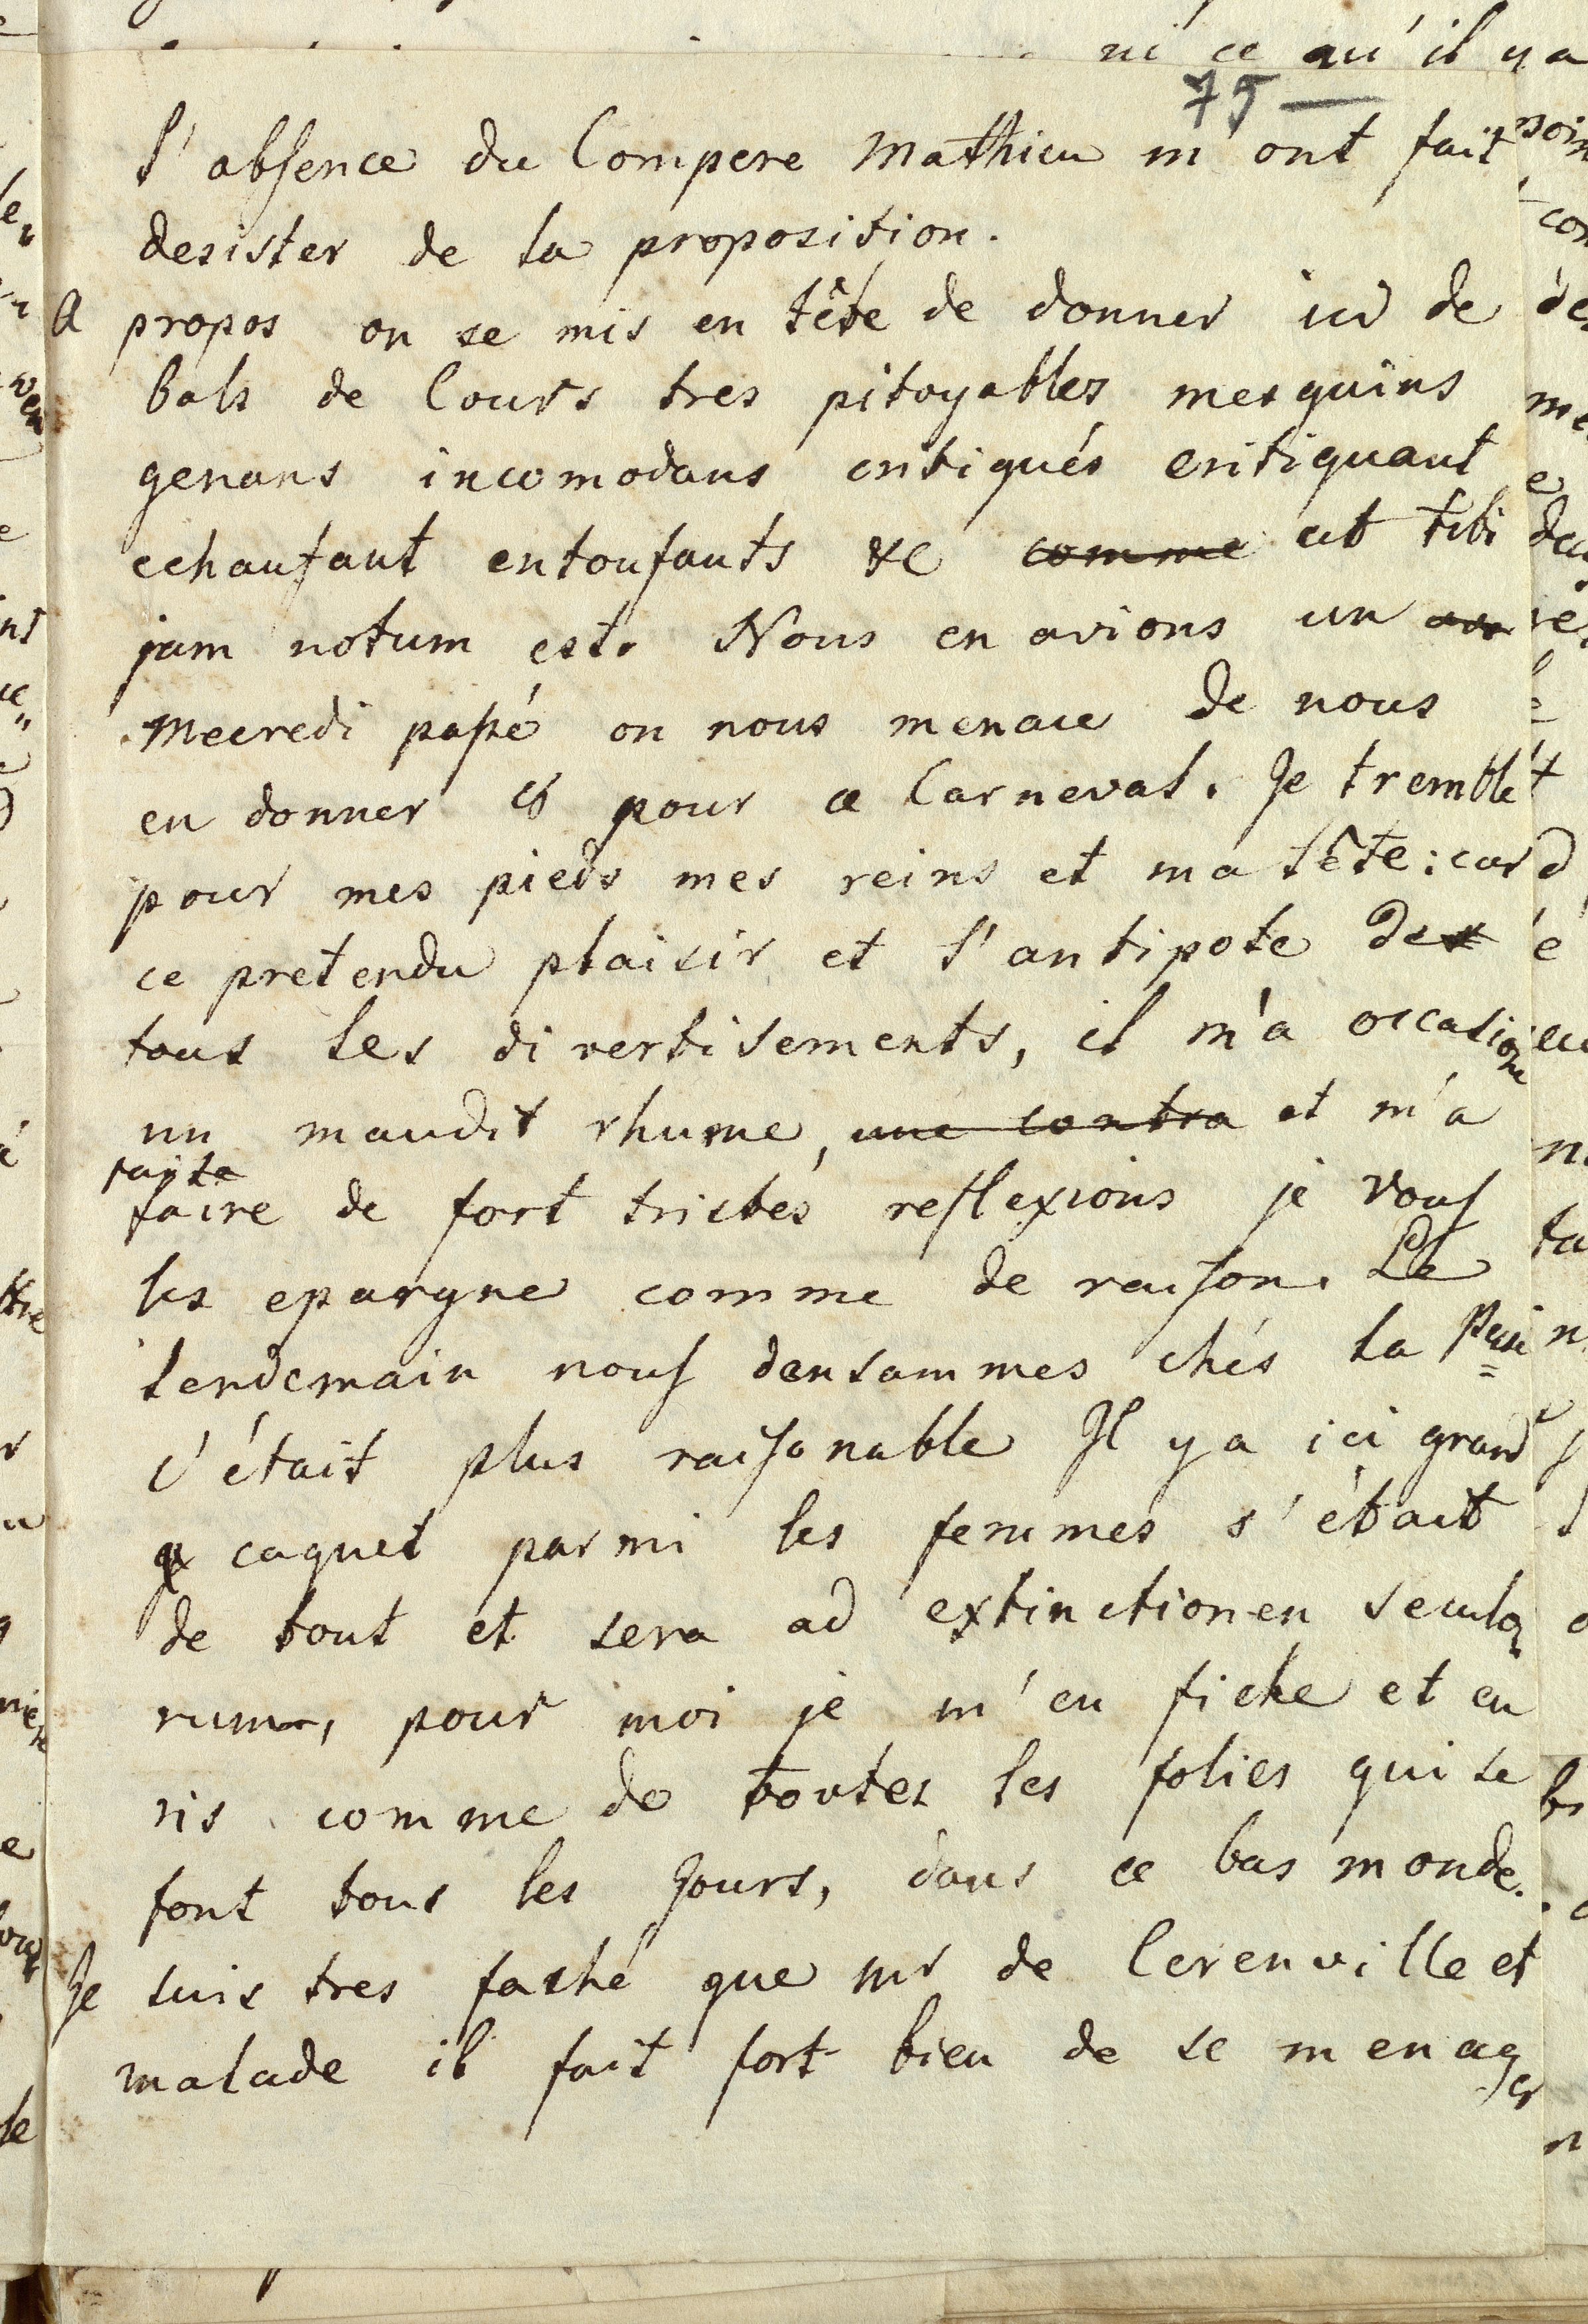 ni ce qu'il y a
75
l'absence du Compere Mathieu m'ont fait
desister de la proposition.
A propos on se mis en tête de donner ici de
bals de Cours tres pitoyables mesquins
genans incomodans critiqués critiquant
echaufant entoufants &c comme ut tibi
jam notum est. Nous en avions un
Mecredi passé on nous menace de nous
en donner 6 pour ce Carneval. Je tremble
pour mes pieds mes reins et ma tête: car
ce pretendu plaisir et l'antipote de
tous les divertisements, il m'a occasione
un maudit rhume, une contra et m'a
faire de fort tristes reflexions je vous
les epargne comme de raison. Le
lendemain nous densammes chés la
c'était plus raisonable Il y a ici grand
caquet parmi les femmes s'était
de tout et sera ad extinctionen seculo
rum, pour moi je m'en fiche et en
ris comme de toutes les folies qui se
font tous les Jours, dans ce bas monde.
Je suis tres faché que mr de Cerenville et
malade il fait fort bien de se menager